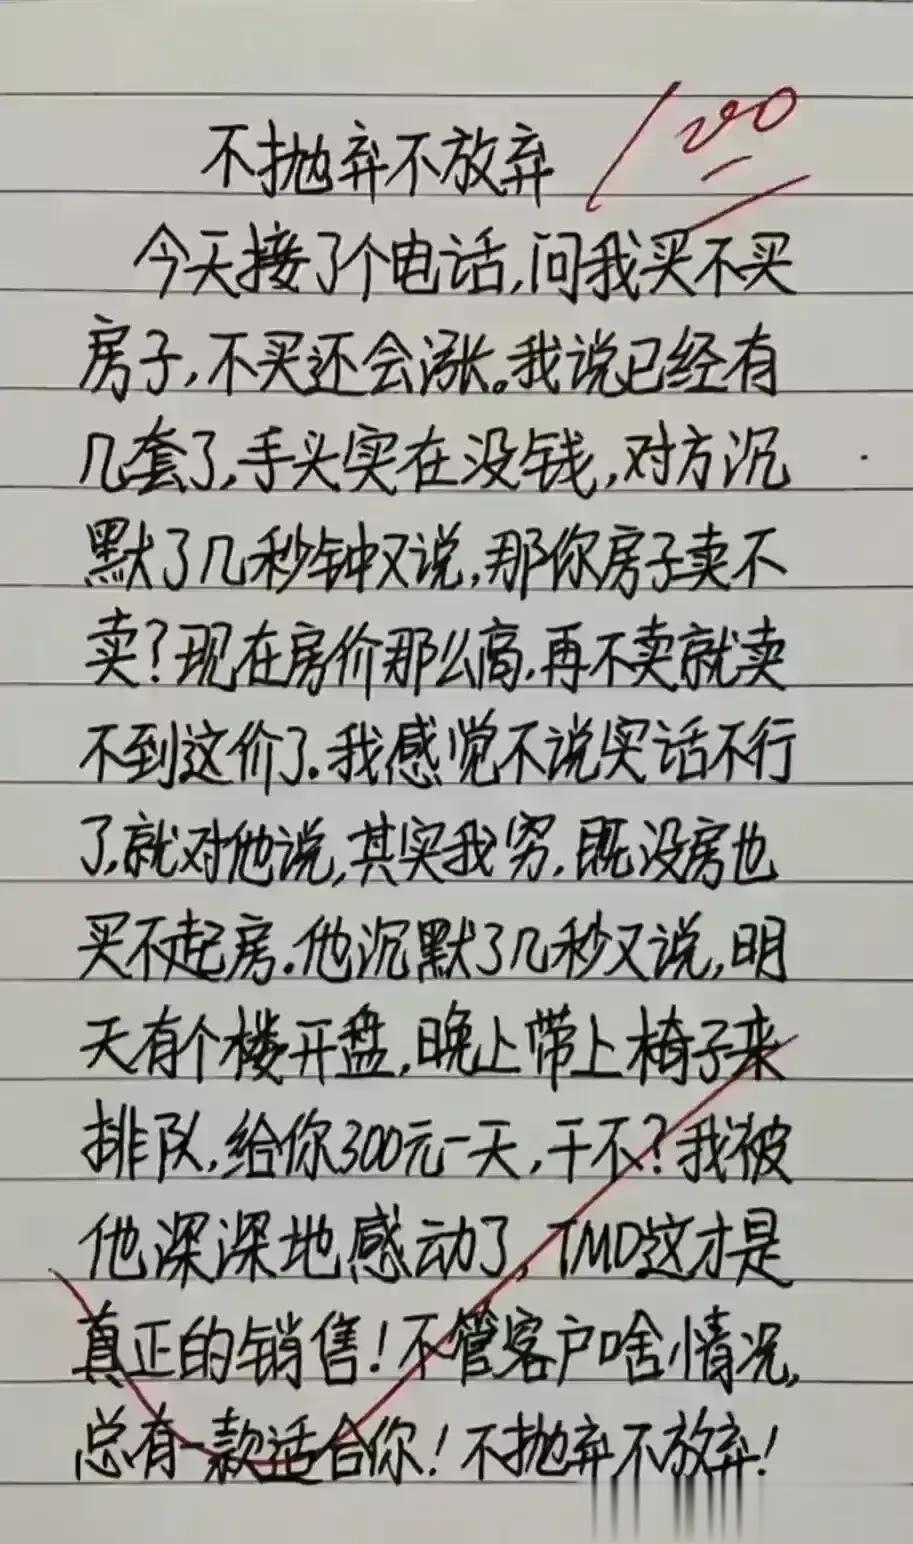 不抛弃不放弃
今天接了个电话,问我买不买
房子,不买还会涨。我说已经有
几套了,手头实在没钱,对方沉
默了几秒钟又说,那你房子卖不
卖?现在房价那么高,再不卖就卖
不到这价了.我感觉不说实话不行
了,就对他说,其实我穷,既没房也
买不起房.他沉默了几秒又说,明
天有个楼开盘,晚上带上椅子来
排队,给你300元一天,干不?我被
他深深地感动了,TMD这才是
真正的销售!不管客户啥情况,
总有一款适合你!不抛弃不放弃!